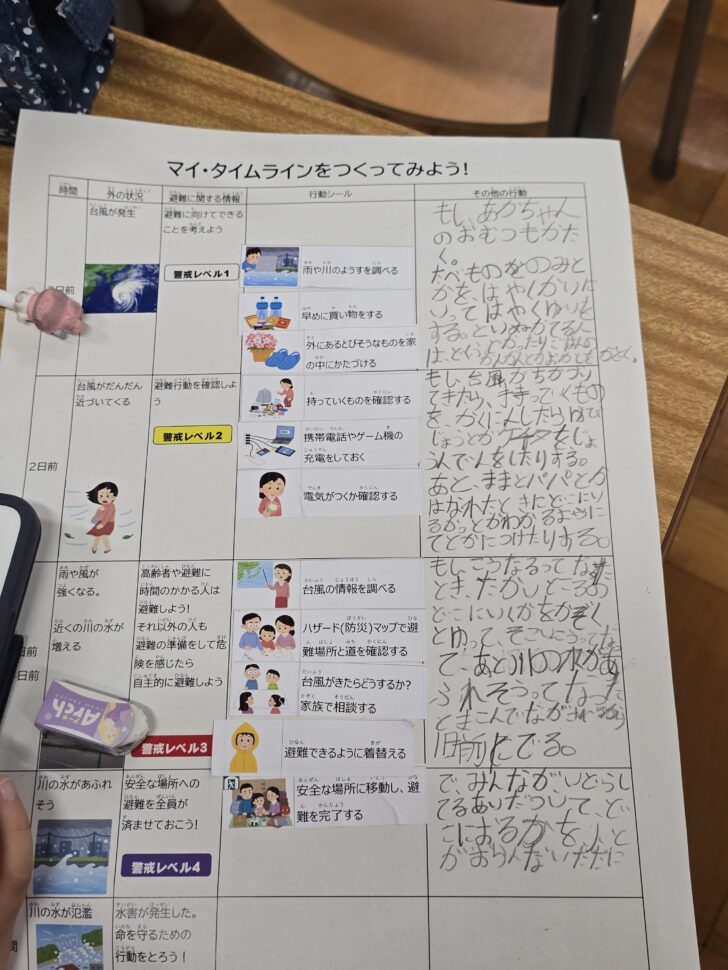 マイ・タイムラインをつくってみよう!
時間
外の状況
避難に関する情報
行動シール
その他の行動
台風が発生
避難に向けてできる
ことを考えよう
警戒レベル1
雨や川のようすを調べる
早めに買い物をする
外にあるとびそうなものを家
の中にかたづける
もし、あかちゃん
のおむつもかた
く。
たべものをのみと
かを、はやくかいに
いってはやくゆいを
する。
台風がだんだん
近づいてくる
避難行動を確認しよ
う
警戒レベル2
2日前
持っていくものを確認する
携帯電話やゲーム機の
充電をしておく
電気がつくか確認する
もし、台風がちかづい
てきたら、
もっていくもの
をかくにんしたら
あと、ままとパパとか
はなれたときに
わかるように
雨や風が
強くなる。
近くの川の水が
増える
高齢者や避難に
時間のかかる人は
避難しよう!
それ以外の人も
避難の準備をして危
険を感じたら
自主的に避難しよう
警戒レベル3
日前
台風の情報を調べる
ハザード(防災)マップで避
難場所と道を確認する
台風がきたらどうするか?
家族で相談する
避難できるように着替える
もし、こうなるってなった
とき、たかいところの
どこにいくかをかぞく
とゆって、そこにいこうってなっ
て、あと川の水があ
ふれそうってなった
とき
前にでる。
Arch
川の水があふれ
そう
安全な場所への
避難を全員が
済ませておこう!
警戒レベル4
安全な場所に移動し、避
難を完了する
で、みんなが、
ど
こにおるかを、人と
川の水が氾濫
水害が発生した。
命を守るための
行動をとろう!